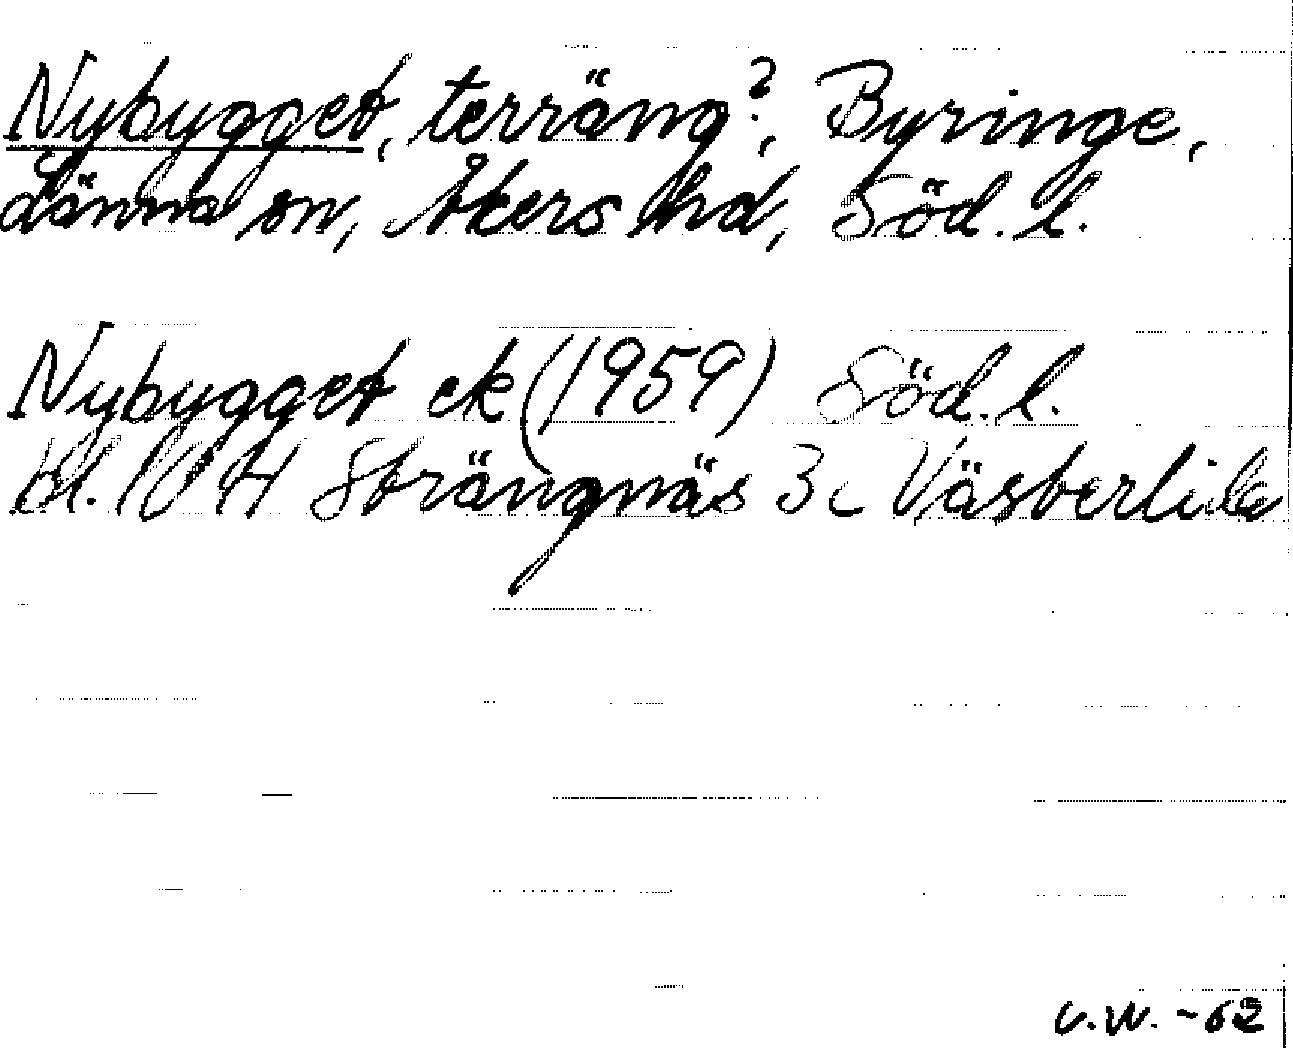 Nybygget, terräng?, Byringe,
Länna sn, Åkers hd, Söd. l.
Nybygget ek (1959) Söd. l.
bl. 10 H Strängnäs 3c Västerlida
U.W. -62